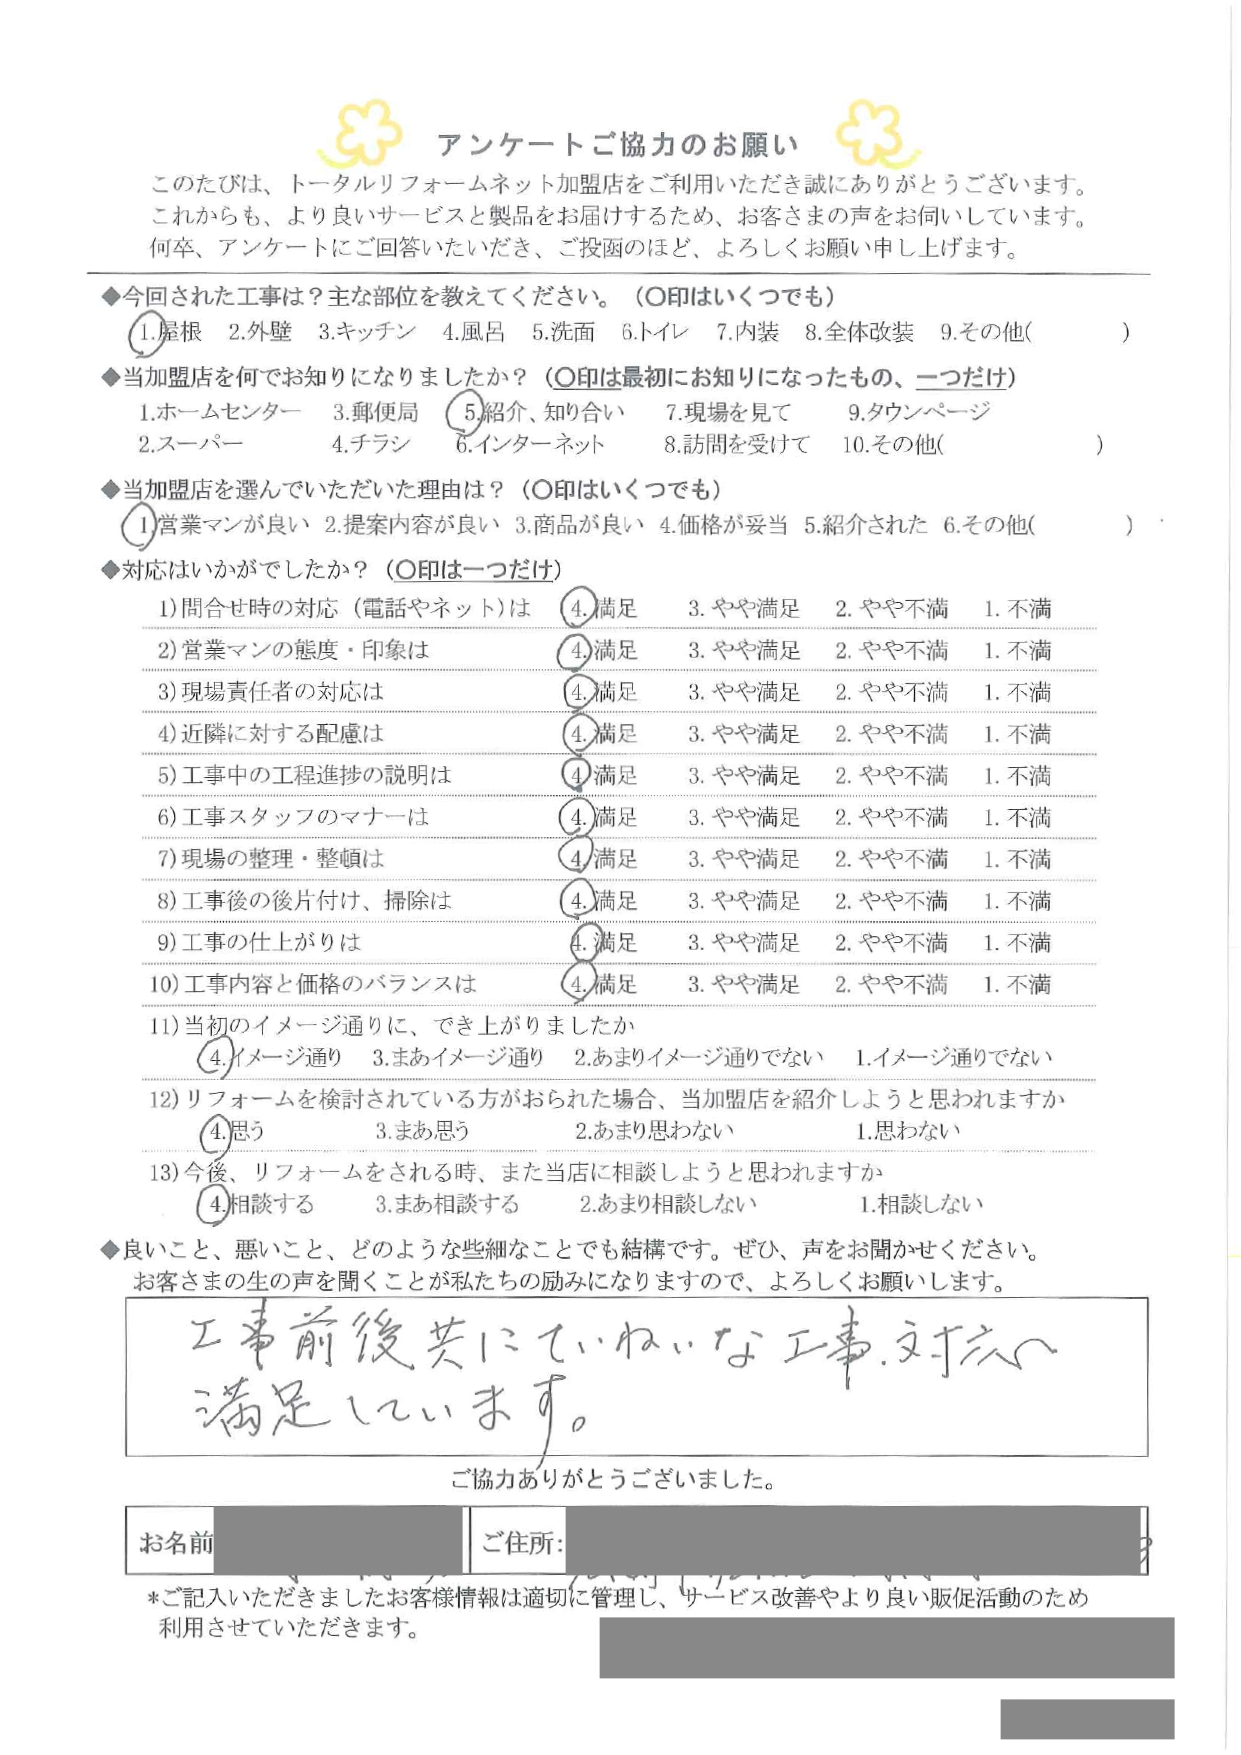 アンケートご協力のお願い
このたびは、トータルリフォームネット加盟店をご利用いただき誠にありがとうございます。
これからも、より良いサービスと製品をお届けするため、お客さまの声をお伺いしています。
何卒、アンケートにご回答いたいだき、ご投函のほど、よろしくお願い申し上げます。
◆今回された工事は？主な部位を教えてください。（〇印はいくつでも）
1.屋根 2.外壁 3.キッチン 4.風呂 5.洗面 6.トイレ 7.内装 8.全体改装 9.その他( )
◆当加盟店を何でお知りになりましたか？（〇印は最初にお知りになったもの、一つだけ）
1.ホームセンター 3.郵便局 5.紹介、知り合い 7.現場を見て 9.タウンページ
2.スーパー 4.チラシ 6.インターネット 8.訪問を受けて 10.その他( )
◆当加盟店を選んでいただいた理由は？（〇印はいくつでも）
1.営業マンが良い 2.提案内容が良い 3.商品が良い 4.価格が妥当 5.紹介された 6.その他( )
◆対応はいかがでしたか？（〇印は一つだけ）
1)問合せ時の対応（電話やネット）は 4.満足 3.やや満足 2.やや不満 1.不満
2)営業マンの態度・印象は 4.満足 3.やや満足 2.やや不満 1.不満
3)現場責任者の対応は 4.満足 3.やや満足 2.やや不満 1.不満
4)近隣に対する配慮は 4.満足 3.やや満足 2.やや不満 1.不満
5)工事中の工程進捗の説明は 4.満足 3.やや満足 2.やや不満 1.不満
6)工事スタッフのマナーは 4.満足 3.やや満足 2.やや不満 1.不満
7)現場の整理・整頓は 4.満足 3.やや満足 2.やや不満 1.不満
8)工事後の後片付け、掃除は 4.満足 3.やや満足 2.やや不満 1.不満
9)工事の仕上がりは 4.満足 3.やや満足 2.やや不満 1.不満
10)工事内容と価格のバランスは 4.満足 3.やや満足 2.やや不満 1.不満
11)当初のイメージ通りに、でき上がりましたか
4.イメージ通り 3.まあイメージ通り 2.あまりイメージ通りでない 1.イメージ通りでない
12)リフォームを検討されている方がおられた場合、当加盟店を紹介しようと思われますか
4.思う 3.まあ思う 2.あまり思わない 1.思わない
13)今後、リフォームをされる時、また当店に相談しようと思われますか
4.相談する 3.まあ相談する 2.あまり相談しない 1.相談しない
◆良いこと、悪いこと、どのような些細なことでも結構です。ぜひ、声をお聞かせください。
お客さまの生の声を聞くことが私たちの励みになりますので、よろしくお願いします。
工事前後共にていねいな工事.対応へ
満足しています。
ご協力ありがとうございました。
お名前 ご住所:
*ご記入いただきましたお客様情報は適切に管理し、サービス改善やより良い販促活動のため
利用させていただきます。